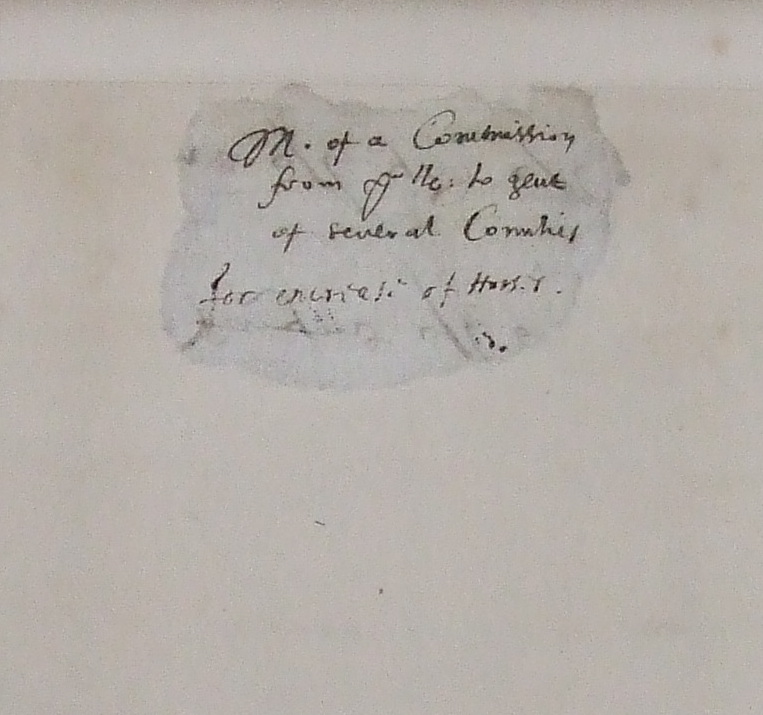 M. of a Commission
from to gent
of several Counties
for encrease of Horses.
3.